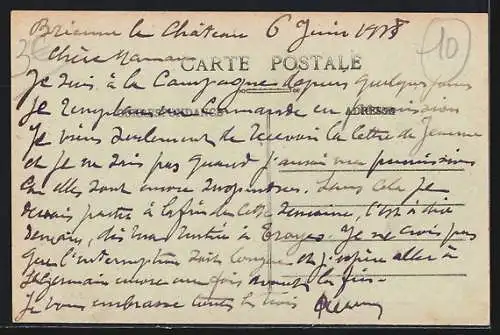 Brienne le Château 6 Juin 1918
3€
10
Chère Maman
CARTE POSTALE
Je suis à la Campagne depuis quelques jours
CORRESPONDANCE
ADRESSE
Je remplace un Commande en permission
Je viens seulement de recevoir la lettre de Jeanne
et je ne sais pas quand j'aurai ma permission
Car elles sont encore suspendues. Sans cela je
devais partir à la fin de cette semaine, c'est à dire
demain, dès ma rentrée à Troyes. Je ne crois pas
que l'interruption soit longue et j'espère aller à
St Germain encore une fois avant la fin.
Je vous embrasse toutes les trois